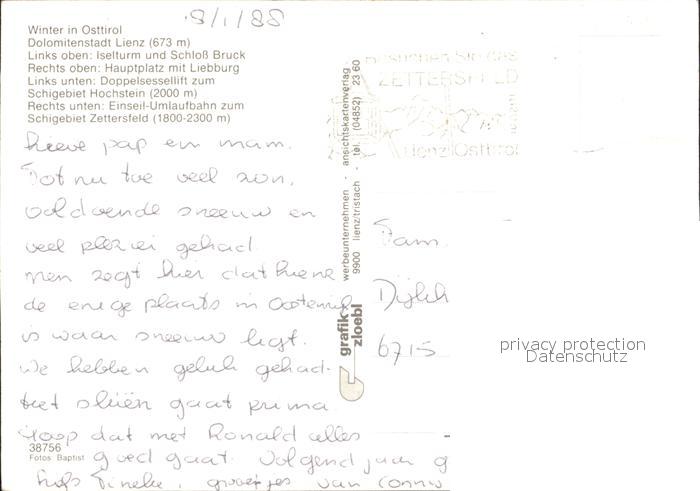 8/1/88
Winter in Osttirol
Dolomitenstadt Lienz (673 m)
Links oben: Iselturm und Schloß Bruck
Rechts oben: Hauptplatz mit Liebburg
Links unten: Doppelsessellift zum
Schigebiet Hochstein (2000 m)
Rechts unten: Einseil-Umlaufbahn zum
Schigebiet Zettersfeld (1800-2300 m)
lieve pap en mam.
Tot nu toe veel zon,
voldoende sneeuw en
veel plezier gehad.
men zegt hier dat Lienz
de enige plaats in Oostenrijk
is waar sneeuw ligt.
We hebben geluk gehad.
Het skiën gaat prima
Hoop dat met Ronald alles
goed gaat. Volgend jaar g
liefs Tineke, groetjes van
38756
Fotos Baptist
werbeunternehmen · ansichtskartenverlag ·
9900 lienz/tristach · tel. (04852) 23 60
grafik
zloebl
Besuchen Sie das
ZETTERSFELD
Lienz Osttirol
Fam.
6715
privacy protection
Datenschutz